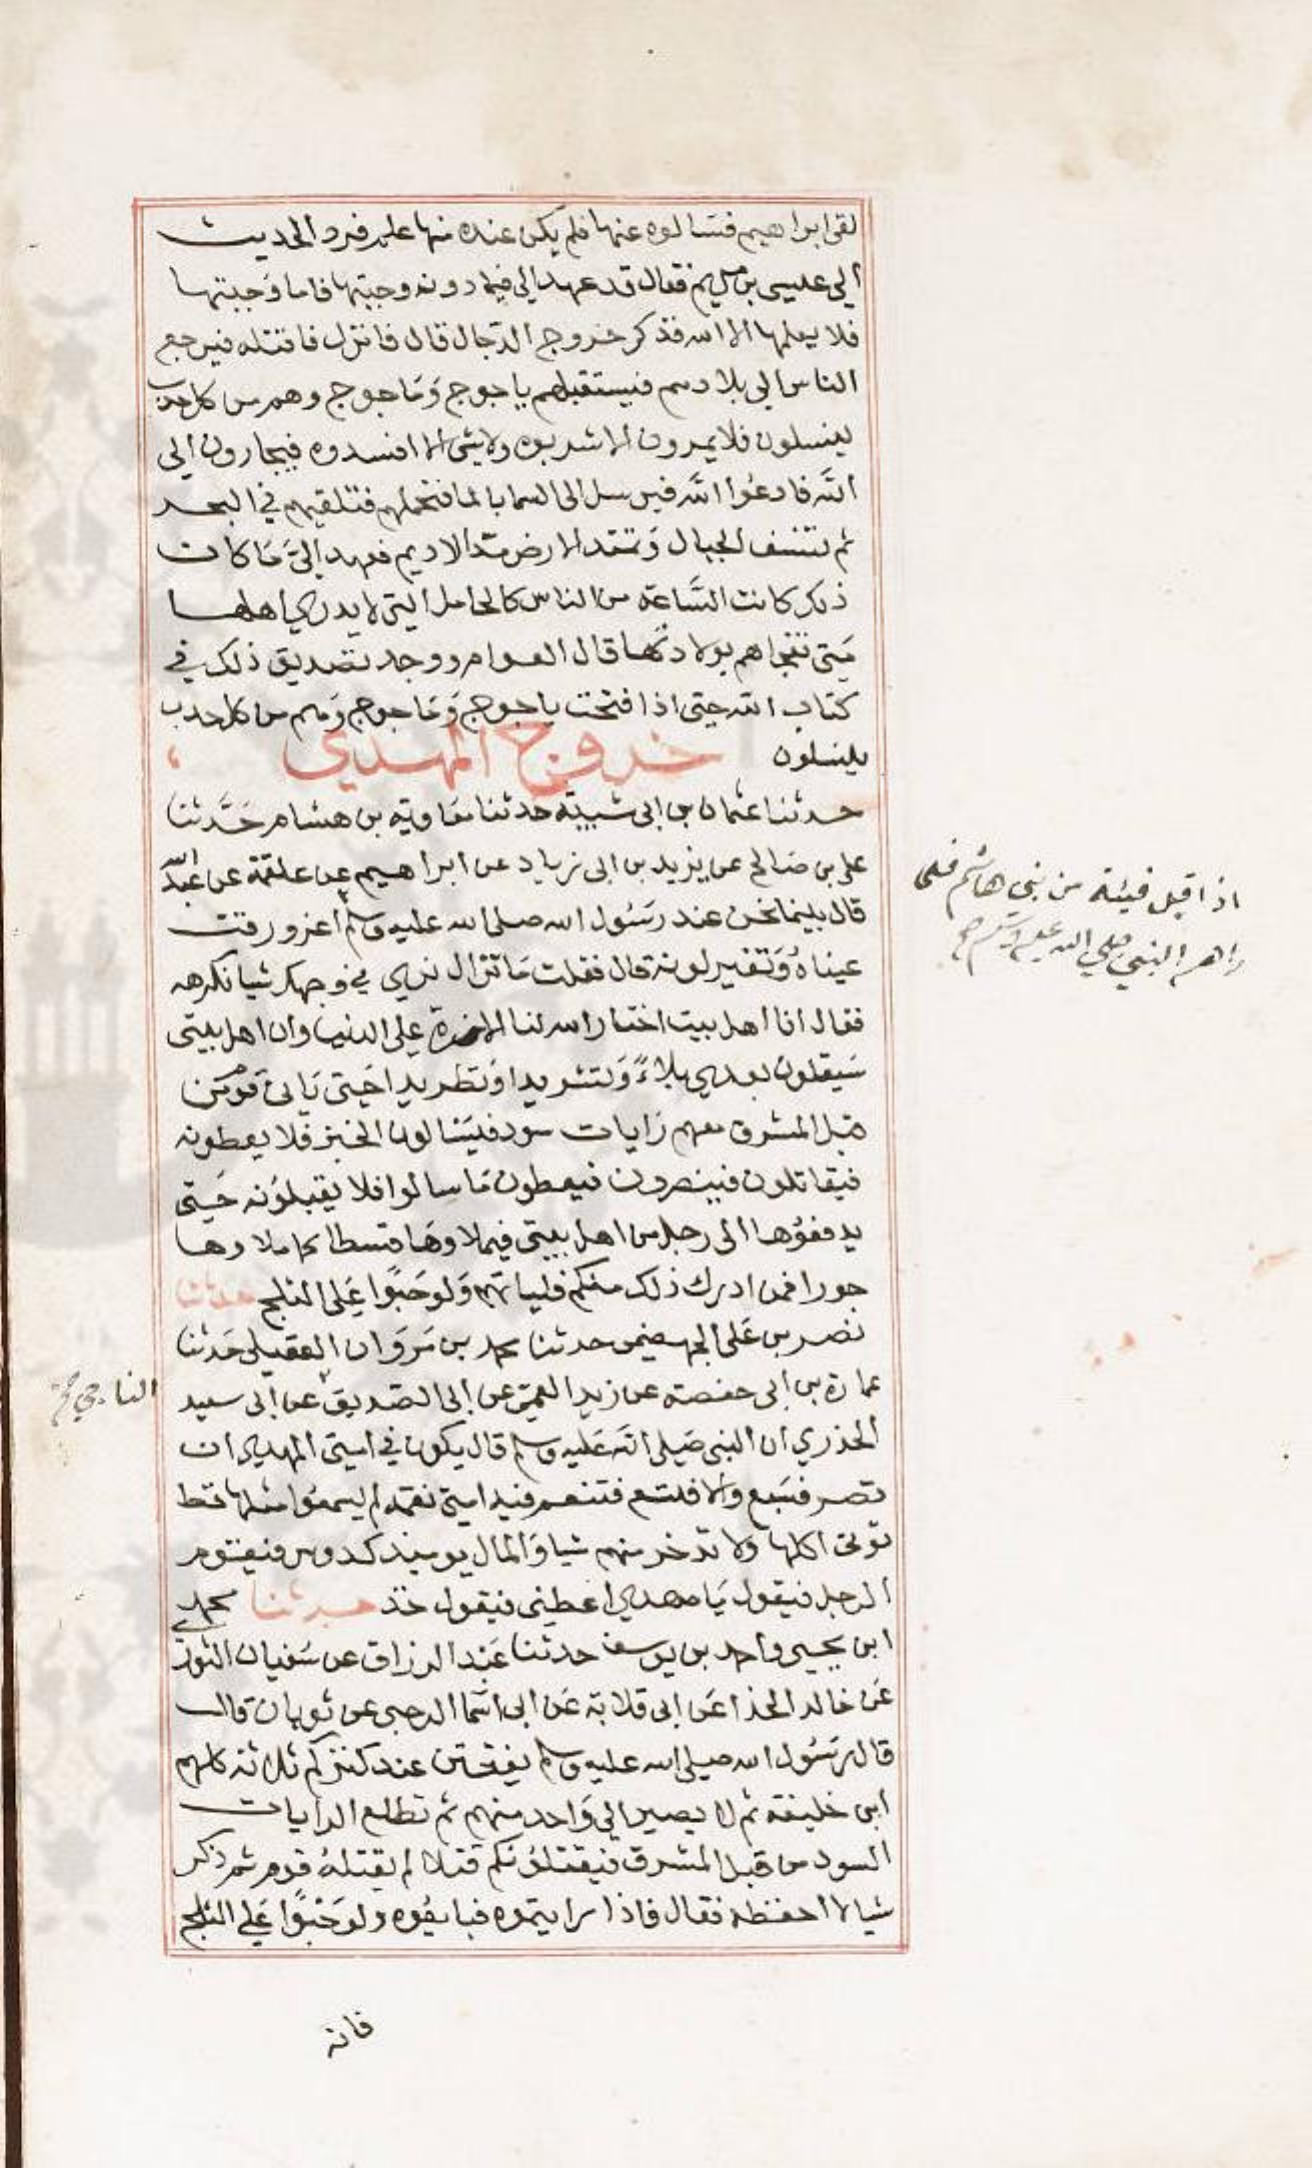 لقى ابراهيم فسالوه عنها فلم يكن عنده منها علم فرد الحديث
الى عيسى بن مريم فقال قد عهد الي فيما دون وجبتها فاما وجبتها
فلا يعلمها الا الله فذكر خروج الدجال قال فانزل فاقتله فيرجع
الناس الى بلادهم فيستقبلهم ياجوج وماجوج وهم من كل حدب
ينسلون فلا يمرون الا شربوه ولا شى الا افسدوه فيجارون الى
الله فادعوا الله فيرسل الى السما بالما فتحملهم فتلقيهم في البحر
ثم تنسف الجبال وتمتد الارض مد الاديم فعهد الي ما كان
ذلك كانت الساعة من الناس كالحامل التي لا يدري اهلها
متى تفجاهم بولادتها قال العوام ووجد تصديق ذلك في
كتاب الله حتى اذا فتحت ياجوج وماجوج وهم من كل حدب
ينسلون خروج المهدي
حدثنا عثمان بن ابى شيبة حدثنا معاوية بن هشام حدثنا
على بن صالح عن يزيد بن ابى زياد عن ابراهيم عن علقمة عن عبد الله
قال بينما نحن عند رسول الله صلى الله عليه وسلم اغرورقت
اذ اقبل فيئة من بنى هاشم فلما
راهم النبي صلي الله عليه وسلم صح
عيناه وتغير لونه قال فقلت ما نزال نري في وجهك شيا نكرهه
فقال انا اهل بيت اختار الله لنا الاخرة على الدنيا وان اهل بيتى
سيقلون بعدي بلاء وتشريدا وتطريدا حتى ياتى قوم من
قبل المشرق معهم رايات سود فيسالون الخبز فلا يعطونه
فيقاتلون فينصرون فيعطون ما سالوا فلا يقبلونه حتى
يدفعوها الى رجل من اهل بيتى فيملاوها قسطا كما ملاوها
جورا فمن ادرك ذلك منكم فلياتهم ولو حبوا على الثلج حدثنا
نصر بن على الجهضمى حدثنا محمد بن مروان العقيلى حدثنا
عمارة بن ابى حفصة عن زيد العمى عن ابى الصديق عن ابى سعيد
الناجي صح
الخدري ان النبى صلى الله عليه وسلم قال يكون في امتى المهدي ان
قصر فسبع والا فتسع فتنعم فيه امتى نعمة لم يسمعوا مثلها قط
توتى اكلها ولا تدخر منهم شيا والمال يوميذ كدوس فيقوم
الرجل فيقول يا مهدي اعطنى فيقول خذ حدثنا محمد
ابن يحيى واحمد بن يوسف حدثنا عبد الرزاق عن سفيان الثوري
عن خالد الحذا عن ابى قلابة عن ابى اسما الرحبى عن ثوبان قال
قال رسول الله صلى الله عليه وسلم يقتتل عند كنزكم ثلاثة كلهم
ابن خليفة ثم لا يصير الى واحد منهم ثم تطلع الرايات
السود من قبل المشرق فيقتلونكم قتلا لم يقتله قوم ثم ذكر
شيا لا احفظه فقال فاذا رايتموه فبايعوه ولو حبوا على الثلج
فانه